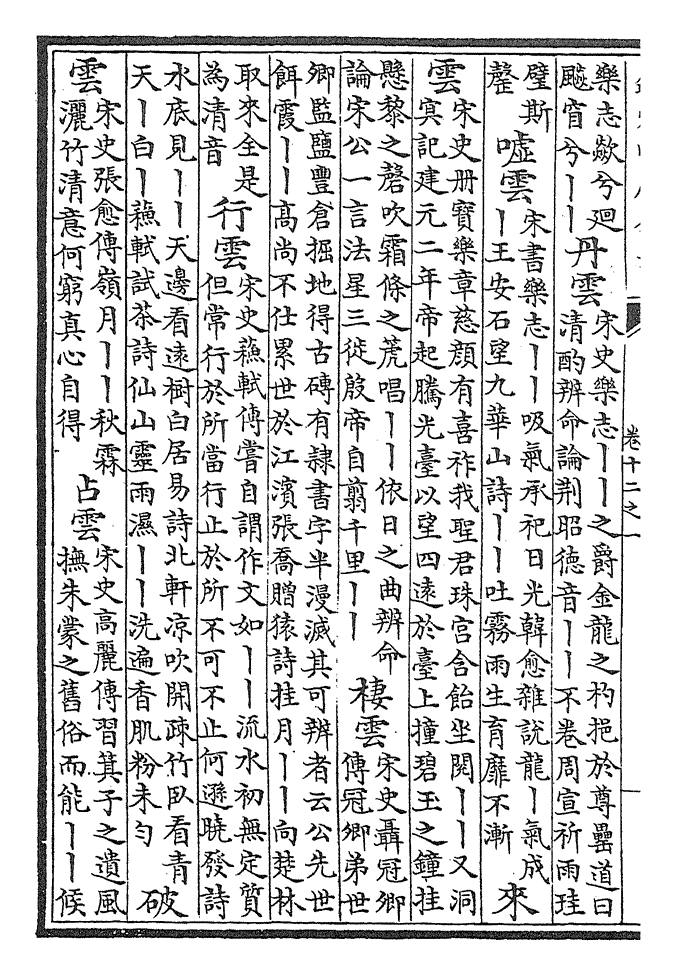 樂志歘兮廻
飈窅兮丨丨
丹雲
宋史樂志丨丨之爵金龍之杓挹於尊罍道日
清酌辨命論荆昭德音丨丨不卷周宣祈雨珪
璧斯
罄
噓雲
宋書樂志丨丨吸氣承祀日光韓愈雜說龍丨氣成
丨王安石望九華山詩丨丨吐霧雨生育靡不漸
來
雲
宋史册寶樂章慈顔有喜祚我聖君珠宫含飴坐閱丨丨又洞
㝠記建元二年帝起騰光臺以望四遠於臺上撞碧玉之鐘挂
懸黎之磬吹霜條之箎唱丨丨依日之曲辨命
論宋公一言法星三徙殷帝自翦千里丨丨
棲雲
宋史聶冠卿
傳冠卿弟世
卿監鹽豐倉掘地得古磚有隷書字半漫滅其可辨者云公先世
餌霞丨丨高尚不仕累世於江濱張喬贈猿詩挂月丨丨向楚林
取來全是
為清音
行雲
宋史蘓軾傳嘗自謂作文如丨丨流水初無定質
但常行於所當行止於所不可不止何遜曉發詩
水底見丨丨天邊看遠樹白居易詩北軒凉吹開疎竹卧看青
天丨白丨蘓軾試茶詩仙山靈雨濕丨丨洗遍香肌粉未勻
破
雲
宋史張愈傳嶺月丨丨秋霖
灑竹清意何窮真心自得
占雲
宋史高麗傳習箕子之遺風
撫朱蒙之舊俗而能丨丨候
卷十二之一